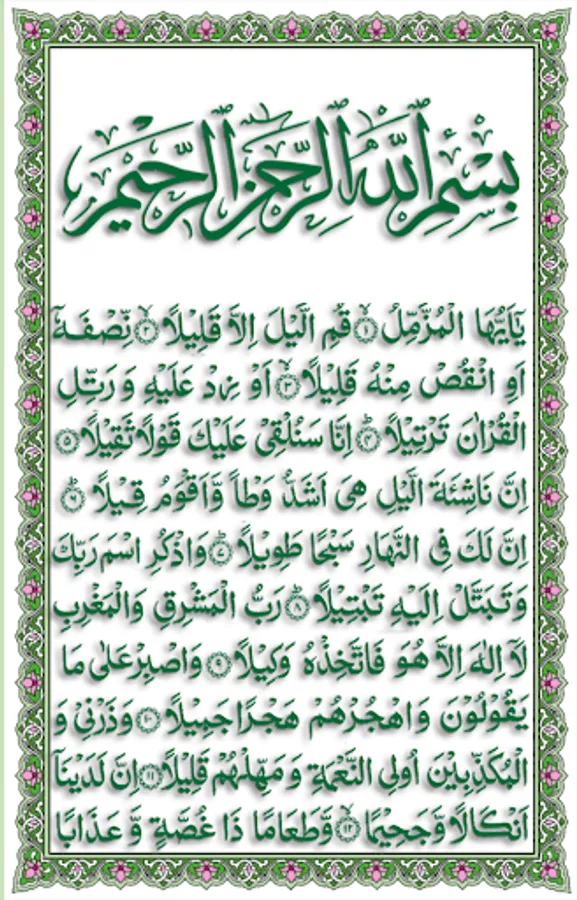 بِسْمِ اللّٰهِ الرَّحْمٰنِ الرَّحِيْمِ
يٰۤاَيُّهَا الْمُزَّمِّلُ ۙ﴿۱﴾ قُمِ الَّيْلَ اِلَّا قَلِيْلًا ۙ﴿۲﴾ نِّصْفَهٗۤ
اَوِ انْقُصْ مِنْهُ قَلِيْلًا ۙ﴿۳﴾ اَوْ زِدْ عَلَيْهِ وَ رَتِّلِ
الْقُرْاٰنَ تَرْتِيْلًا ؕ﴿۴﴾ اِنَّا سَنُلْقِيْ عَلَيْكَ قَوْلًا ثَقِيْلًا ﴿۵﴾
اِنَّ نَاشِئَةَ الَّيْلِ هِيَ اَشَدُّ وَطْاً وَّاَقْوَمُ قِيْلًا ؕ﴿۶﴾
اِنَّ لَكَ فِي النَّهَارِ سَبْحًا طَوِيْلًا ؕ﴿۷﴾ وَاذْكُرِ اسْمَ رَبِّكَ
وَ تَبَتَّلْ اِلَيْهِ تَبْتِيْلًا ؕ﴿۸﴾ رَبُّ الْمَشْرِقِ وَالْمَغْرِبِ
لَاۤ اِلٰهَ اِلَّا هُوَ فَاتَّخِذْهُ وَكِيْلًا ﴿۹﴾ وَاصْبِرْ عَلٰى مَا
يَقُوْلُوْنَ وَاهْجُرْهُمْ هَجْرًا جَمِيْلًا ﴿۱۰﴾ وَذَرْنِيْ وَ
الْمُكَذِّبِيْنَ اُولِي النَّعْمَةِ وَ مَهِّلْهُمْ قَلِيْلًا ﴿۱۱﴾ اِنَّ لَدَيْنَاۤ
اَنْكَالًا وَّجَحِيْمًا ۙ﴿۱۲﴾ وَّطَعَامًا ذَا غُصَّةٍ وَّ عَذَابًا